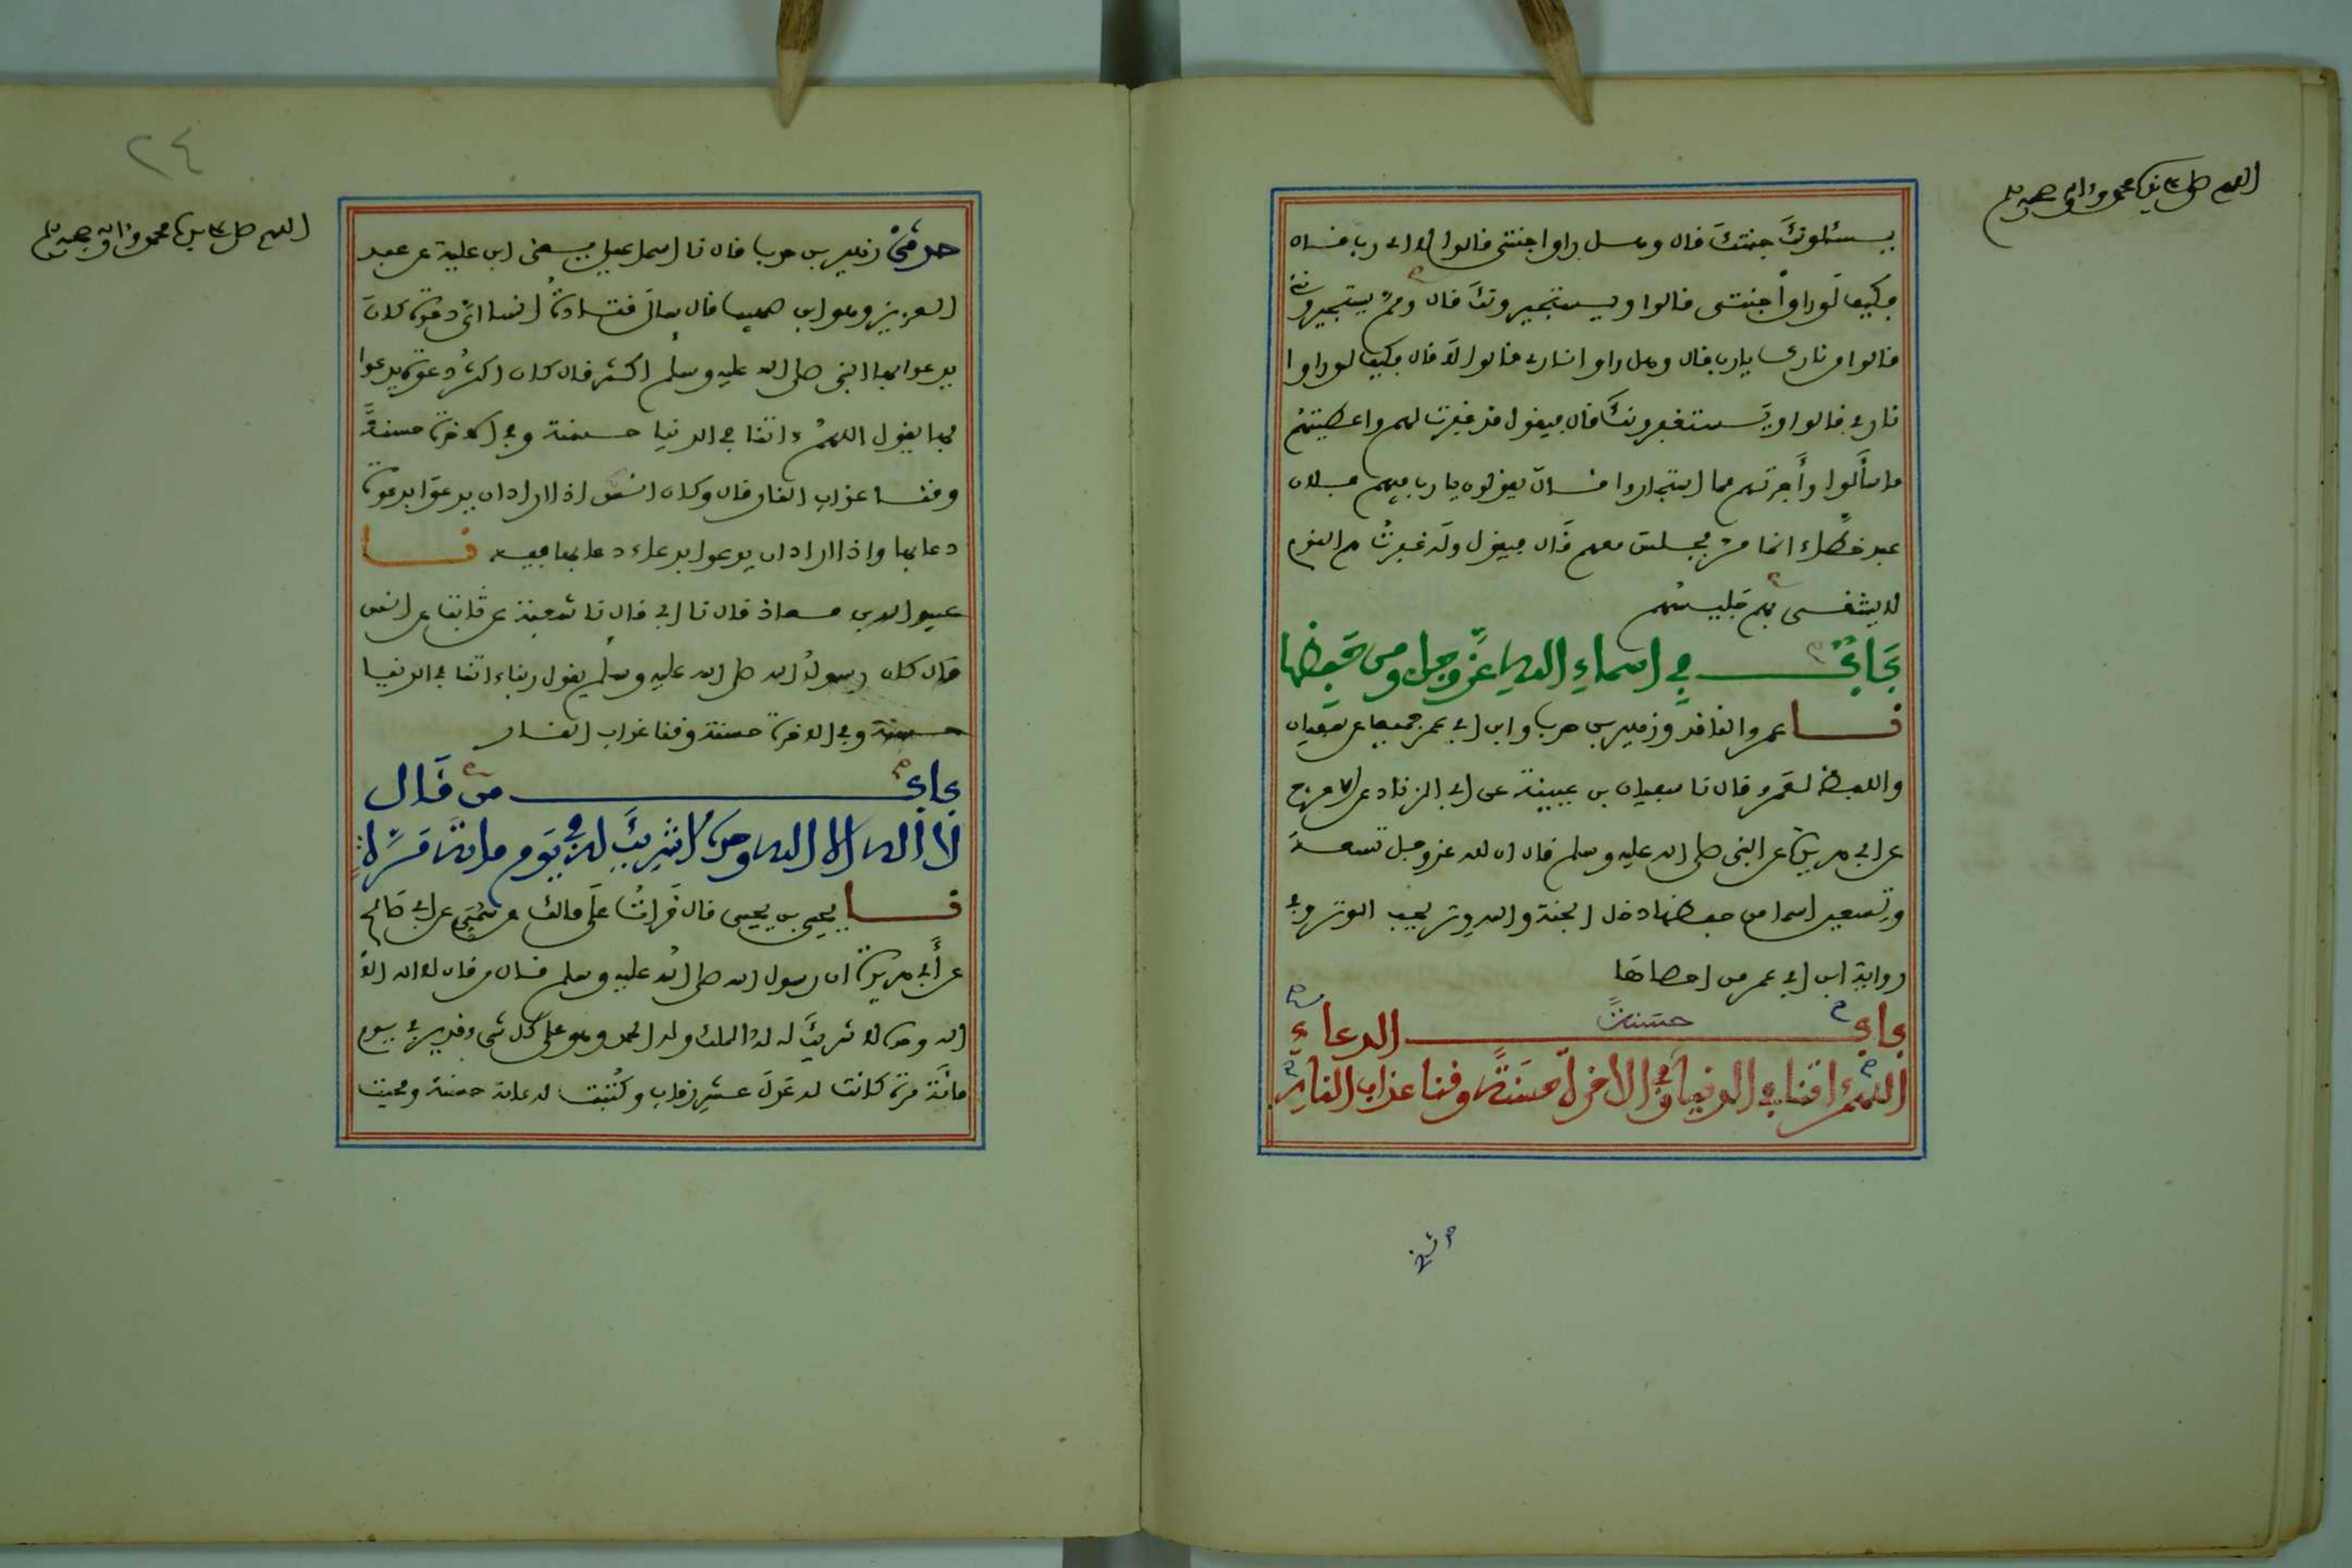 اللهم صل على سيدنا محمد وءاله وصحبه وسلم
يسئلونك جنتك قال وهل راوا جنتي قالوا لا اي رب قال
فكيف لو راوا جنتي قالوا ويستجيرونك قال ومم يستجيرونني
قالوا من نارك يا رب قال وهل راوا ناري قالوا لا قال فكيف لو راوا
ناري قالوا ويستغفرونك قال فيقول قد غفرت لهم واعطيتهم
ما سألوا وأجرتهم مما استجاروا قال يقولون يا رب فيهم فلان
عبد خطاء انما مر فجلس معهم قال فيقول وله غفرت هم القوم
لا يشقى بهم جليسهم
باب في اسماء الله عز وجل ومن حفظها
نا عمرو الناقد وزهير بن حرب وابن ابي عمر جميعا عن سفيان
واللفظ لعمرو قال نا سفيان بن عيينة عن ابي الزناد عن الاعرج
عن ابي هريرة عن النبي صلى الله عليه وسلم قال ان لله عز وجل تسعة
وتسعين اسما من حفظها دخل الجنة والله وتر يحب الوتر وفي
رواية ابن ابي عمر من احصاها
باب الدعاء
حسنة
اللهم ءاتنا في الدنيا وفي الاخرة حسنة وقنا عذاب النار
٢٤
اللهم صل على سيدنا محمد وءاله وصحبه وسلم
حدثني زهير بن حرب قال نا اسماعيل يعني ابن علية عن عبد
العزيز وهو ابن صهيب قال سال قتادة انسا اي دعوة كان
يدعوا بها النبي صلى الله عليه وسلم اكثر قال كان اكثر دعوة يدعوا
بها يقول اللهم ءاتنا في الدنيا حسنة وفي الاخرة حسنة
وقنا عذاب النار قال وكان انس اذا اراد ان يدعوا بدعوة
دعا بها واذا اراد ان يدعوا بدعاء دعا بها فيه نا
عبيد الله بن معاذ قال نا ابي قال نا شعبة عن ثابت عن انس
قال كان رسول الله صلى الله عليه وسلم يقول ربنا ءاتنا في الدنيا
حسنة وفي الاخرة حسنة وقنا عذاب النار
باب من قال
لا اله الا الله وحده لا شريك له في يوم مائة مرة
نا يحيى بن يحيى قال قرات على مالك عن سمي عن ابي صالح
عن أبي هريرة ان رسول الله صلى الله عليه وسلم قال من قال لا اله الا
الله وحده لا شريك له له الملك وله الحمد وهو على كل شيء قدير في يوم
مائة مرة كانت له عدل عشر رقاب وكتبت له مائة حسنة ومحيت